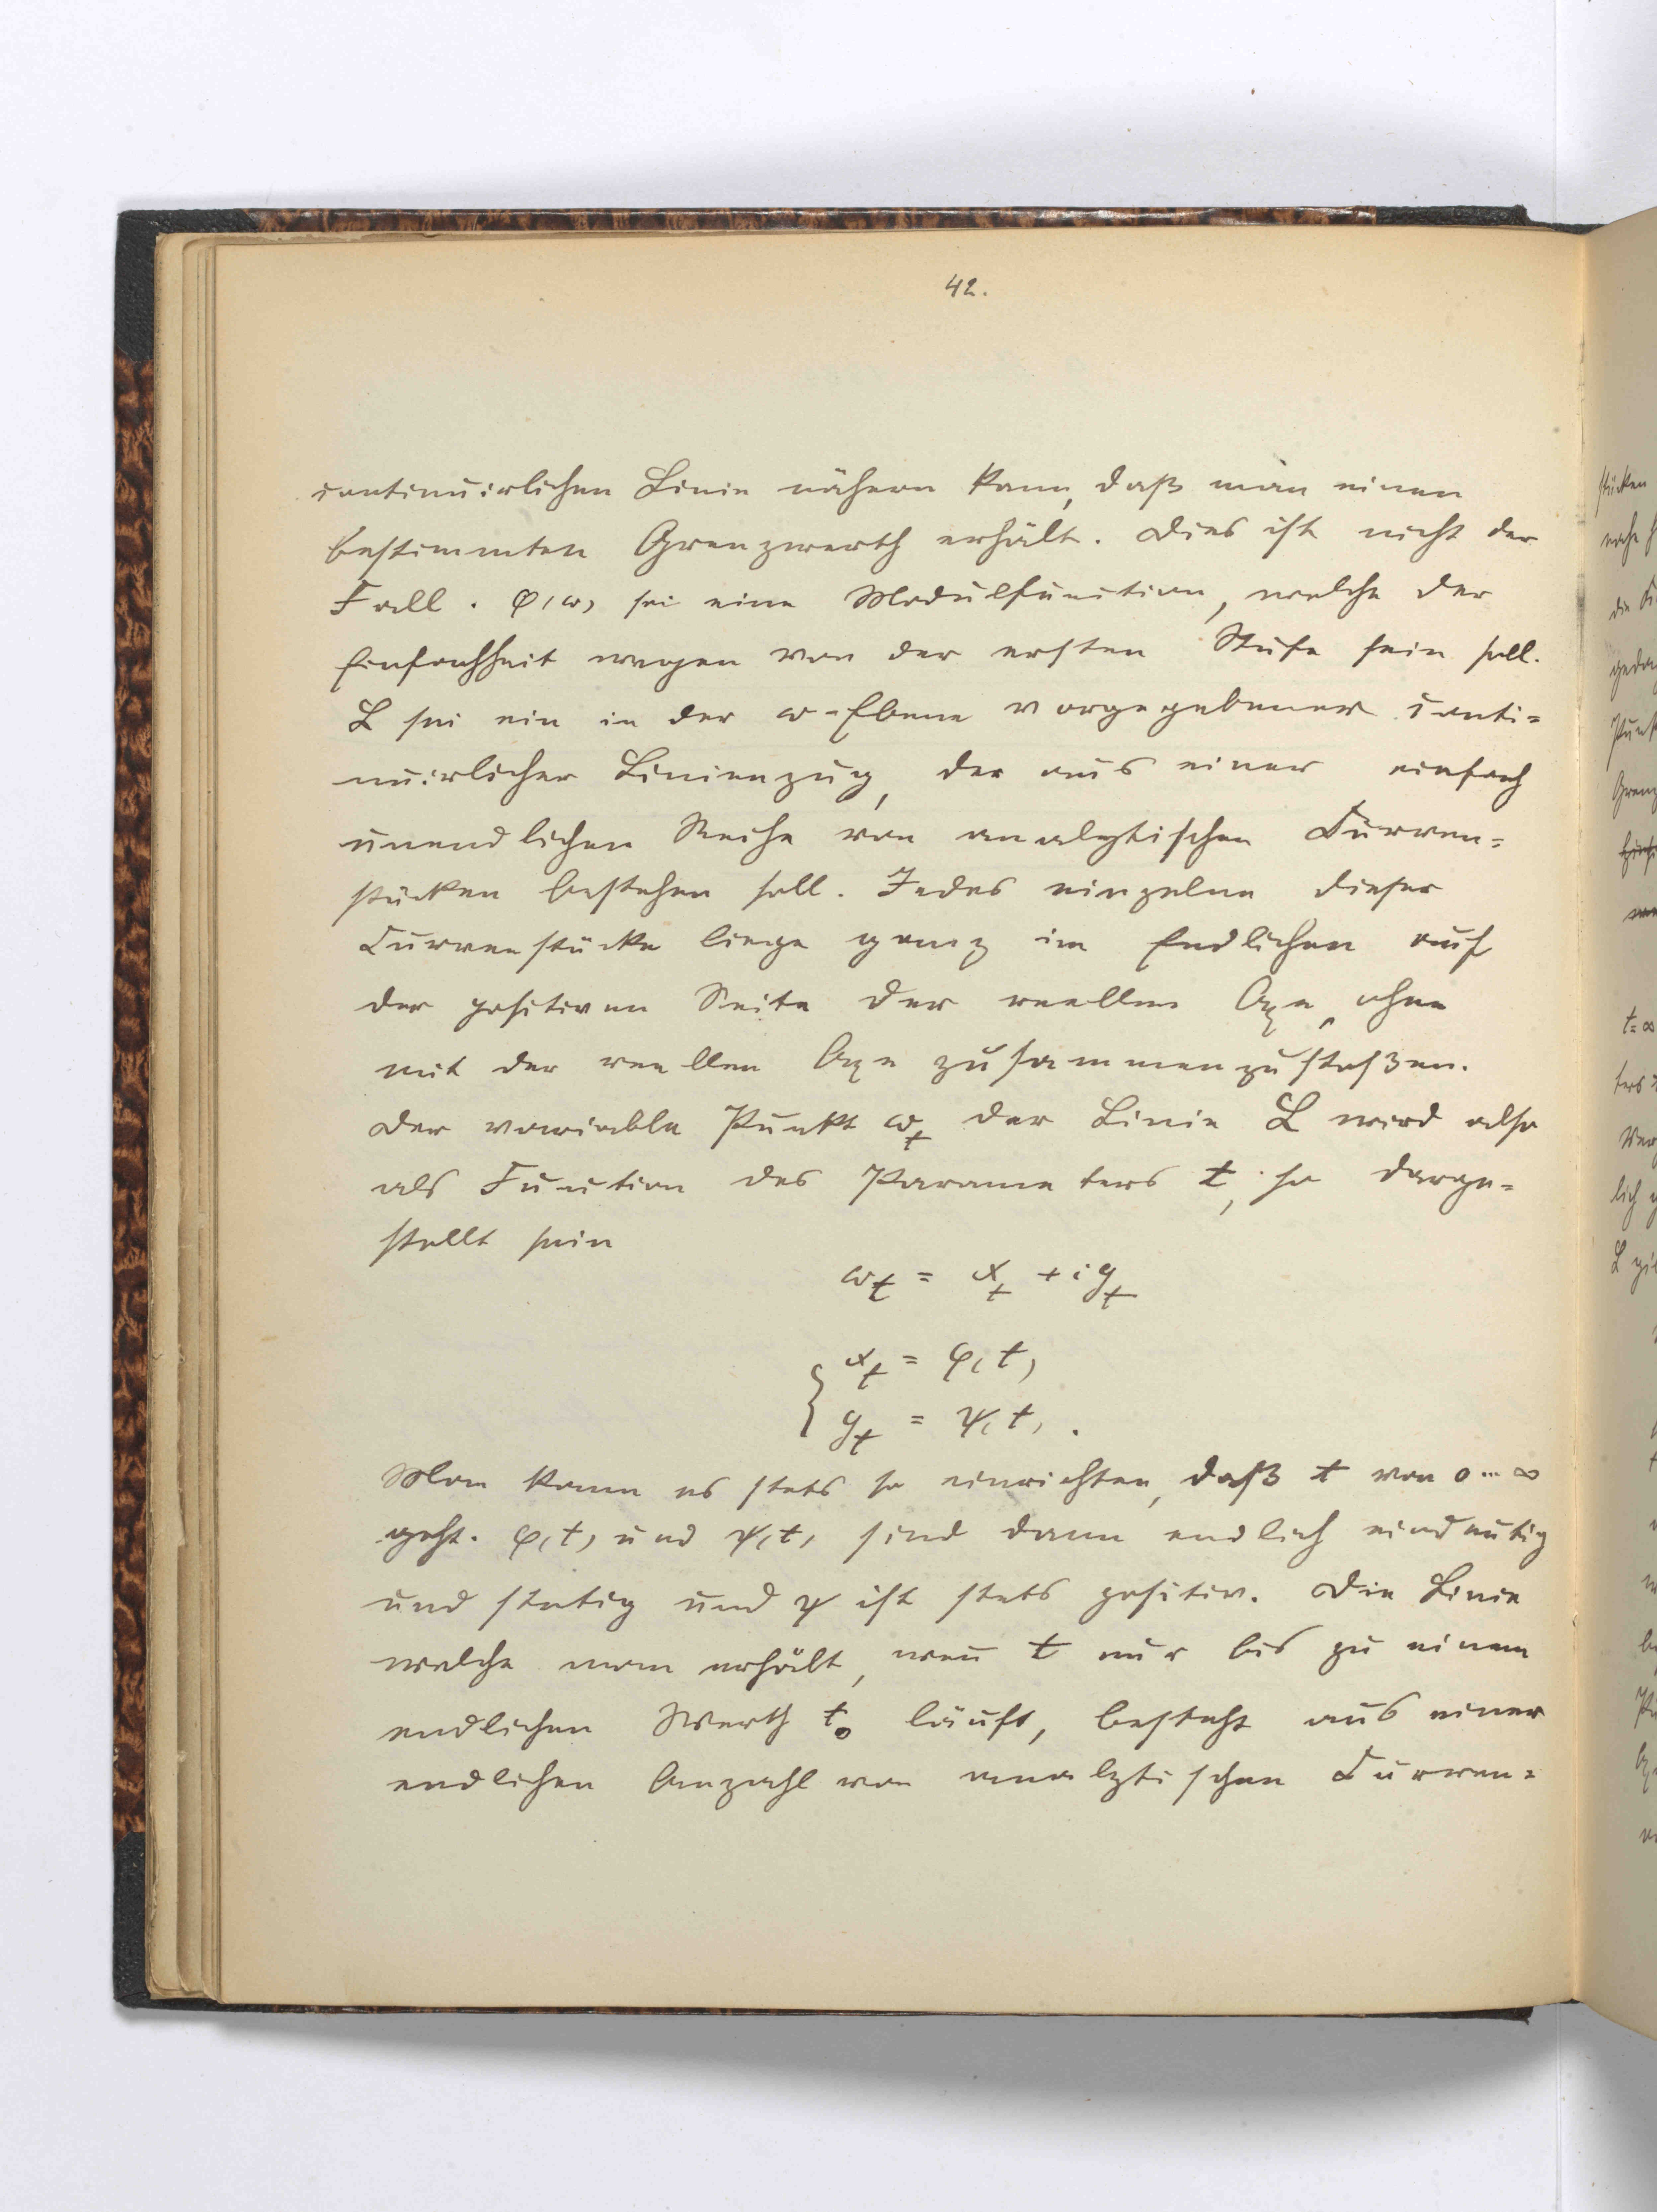 42.
continuirlichen Linie nähern kann, daß man einen
bestimmten Grenzwerth erhält. Dies ist nicht der
Fall. φ(ω) sei eine Modulfunction, welche der
Einfachheit wegen von der ersten Stufe sein soll.
L sei ein in der ω-Ebene vorgegebener conti=
nuirlicher Linienzug, der aus einer einfach
unendlichen Reihe von analytischen Curven=
stücken bestehen soll. Jedes einzelne dieser
Curvenstücke liege ganz im Endlichen auf
der positiven Seite der reellen Axe, ohne
mit der reellen Axe zusammenzustoßen.
Der variable Punkt ω_t der Linie L wird also
als Function des Parameters t, so darge=
stellt sein
ω_t = x_t + i y_t
x_t = φ(t)
y_t = ψ(t).
Man kann es stets so einrichten, daß t von 0...∞
geht. φ(t) und ψ(t) sind dann endlich eindeutig
und stetig und ψ ist stets positiv. Die Linie
welche man erhält, wen̄ t nur bis zu einem
endlichen Werth t_0 läuft, besteht aus einer
endlichen Anzahl von analytischen Curven=